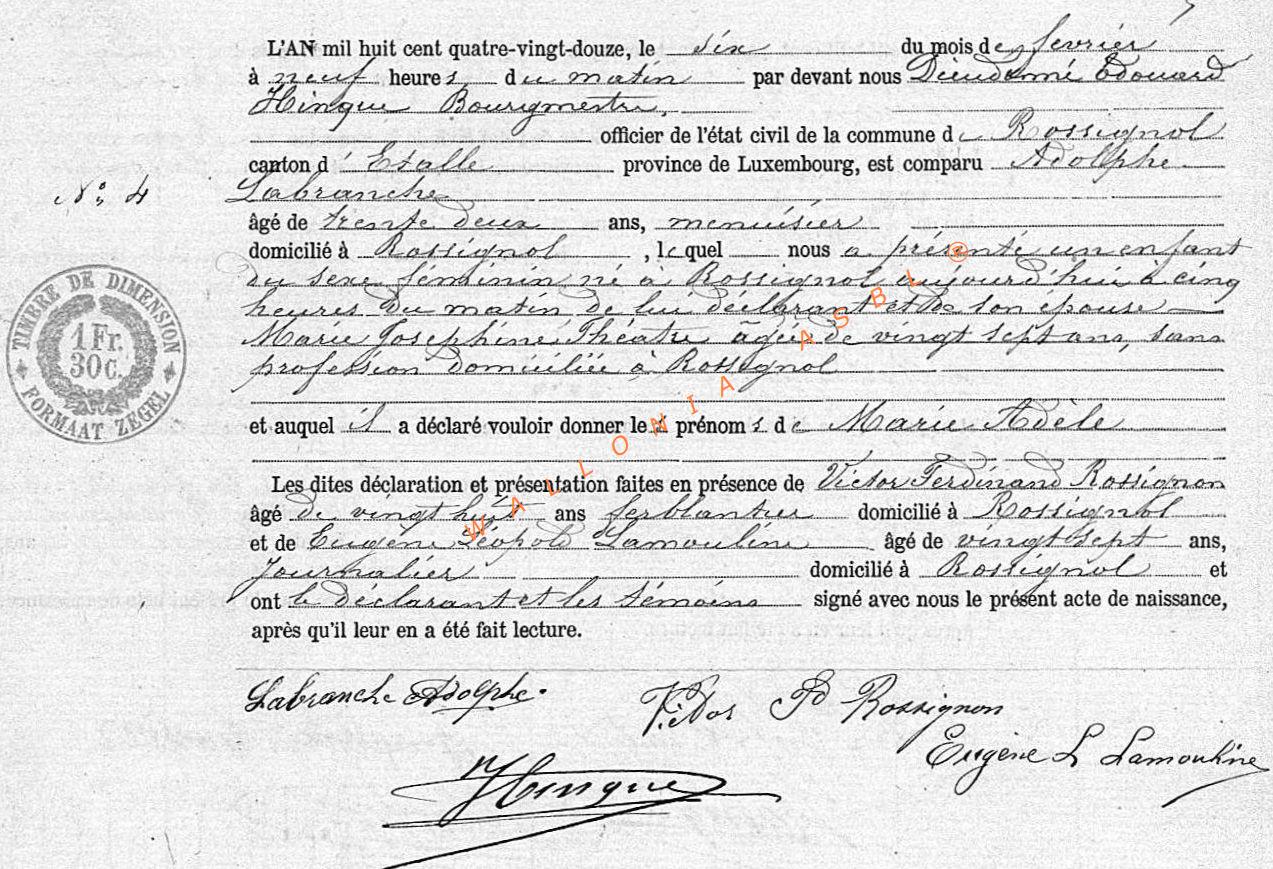 L'AN mil huit cent quatre-vingt-douze, le six du mois de fevrier
à neuf heures du matin par devant nous Dieudonné Edouard
Hinque Bourgmestre,
officier de l'état civil de la commune de Rossignol
canton d'Etalle province de Luxembourg, est comparu Adolphe
N° 4 Labranche
âgé de trente deux ans, menuisier
domicilié à Rossignol, lequel nous a présenté un enfant
du sexe féminin né à Rossignol aujourd'hui à cinq
heures du matin de lui déclarant et de son epouse
Marie Joséphine Théatre âgée de vingt sept ans, sans
profession domiciliée à Rossignol
TIMBRE DE DIMENSION
1 Fr.
30c.
FORMAAT ZEGEL
et auquel il a déclaré vouloir donner les prénoms de Marie Adèle
Les dites déclaration et présentation faites en présence de Victor Ferdinand Rossignon
âgé de vingt huit ans ferblantier domicilié à Rossignol
et de Eugène Léopold Lamouline âgé de vingt sept ans,
Journalier domicilié à Rossignol et
ont le déclarant et les témoins signé avec nous le présent acte de naissance,
après qu'il leur en a été fait lecture.
WALLONIA ASBL ®
Labranche Adolphe.
Victor Fd Rossignon
Eugène L Lamouline
Hinque